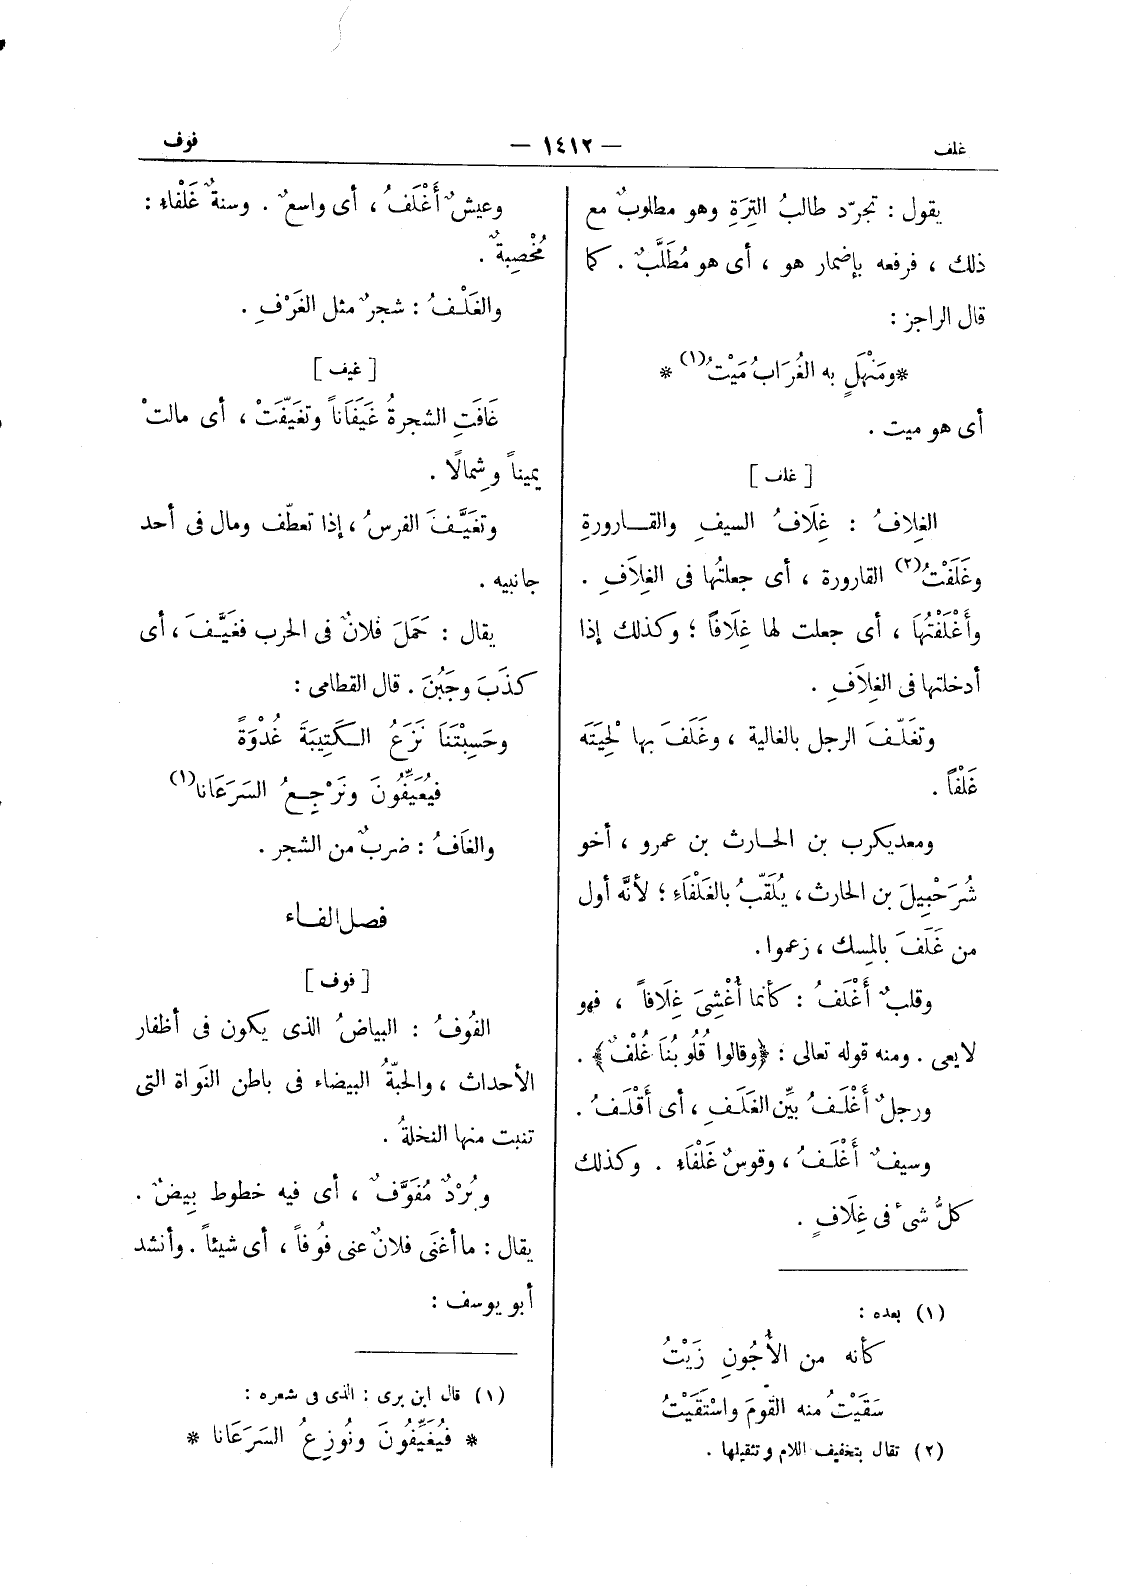 غلف
— ١٤١٢ —
فوف
يقول : تجرّد طالبُ التِرَةِ وهو مطلوبٌ مع
ذلك ، فرفعه بإضمار هو ، أى هو مُطَلَّبٌ . كما
قال الراجز :
* ومَنْهَلٍ به الغُرَابُ مَيْتُ(١) *
أى هو ميت .
[ غلف ]
الغِلافُ : غِلَافُ السيفِ والقــارورةِ
وغَلَفْتُ(٢) القارورة ، أى جعلتُها فى الغِلاَفِ .
وأَغْلَفْتُهَا ، أى جعلت لها غِلَافاً ؛ وكذلك إذا
أدخلتها فى الغِلاَفِ .
وتغَلّفَ الرجل بالغالية ، وغَلَفَ بها لِحْيَتَه
غَلْفاً .
ومعديكرب بن الحـارث بن عمرو ، أخو
شُرَحْبِيلَ بن الحارث ، يُلَقّبُ بالغَلْفَاءِ ؛ لأنّه أول
من غَلَفَ بالمِسك ، زعموا .
وقلبٌ أَغْلَفُ : كأنما أُغْشِىَ غِلَافاً ، فهو
لا يعى . ومنه قوله تعالى : ﴿وقالوا قُلُوبُنَا غُلْفٌ﴾ .
ورجلٌ أَغْلَفُ بيِّن الغَلَفِ ، أى أَقْلَفُ .
وسيفٌ أَغْلَفُ ، وقوسٌ غَلْفَاءُ . وكذلك
كلُّ شىءٍ فى غِلَافٍ .
(١) بعده :
كأنه من الأُجُونِ زَيْتُ
سَقَيْتُ منه القَوْمَ واسْتَقَيْتُ
(٢) تقال بتخفيف اللام وتثقيلها .
وعيشٌ أَغْلَفُ ، أى واسعٌ . وسنةٌ غَلْفاء :
مُخْصِبةٌ .
والغَلْفُ : شجرٌ مثل الغَرْفِ .
[ غيف ]
غَافَتِ الشجرةُ غَيَفَاناً وتغَيّفَتْ ، أى مالتْ
يميناً وشِمالًا .
وتغَيَّفَ الفرسُ ، إذا تعطّف ومال فى أحد
جانبيه .
يقال : حَمَلَ فلانٌ فى الحرب فغَيَّفَ ، أى
كذَبَ وجَبُنَ . قال القطامى :
وحَسِبْتَنَا نَزَعُ الكَتِيبَةَ غُدْوَةً
فيُغَيِّفُونَ ونَرْجِعُ السَرَعَانا(١)
والغَافُ : ضربٌ من الشجر .
فصل الفــاء
[ فوف ]
الفُوفُ : البياضُ الذى يكون فى أظفار
الأحداث ، والحبّةُ البيضاء فى باطن النَواة التى
تنبت منها النخلةُ .
وبُرْدٌ مُفَوَّفٌ ، أى فيه خطوط بِيضٌ .
يقال : ما أغنَى فلانٌ عنى فُوفاً ، أى شيئاً . وأنشد
أبو يوسف :
(١) قال ابن برى : الذى فى شعره :
* فيُغَيِّفُونَ ونُوزِعُ السَرَعَانا *